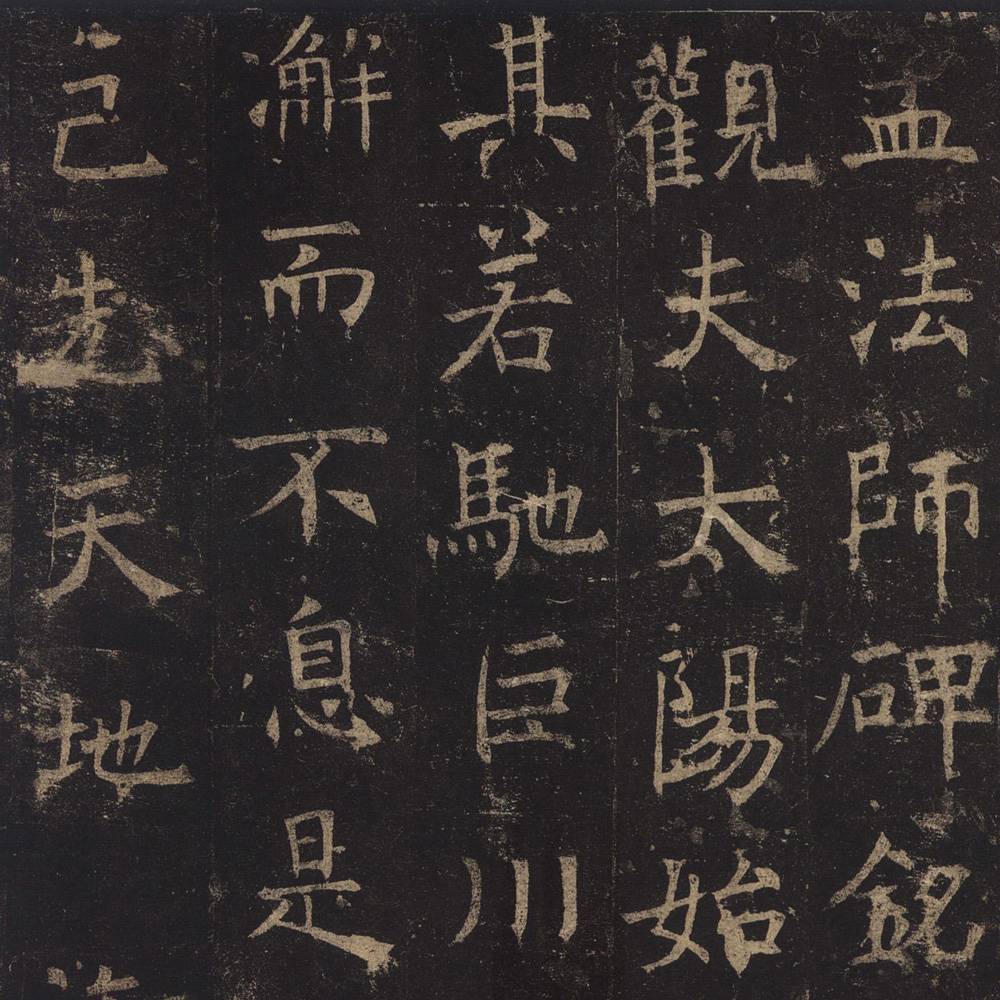 孟法師碑銘
觀夫太陽始
其若馳巨川
澥而不息是
己先天地